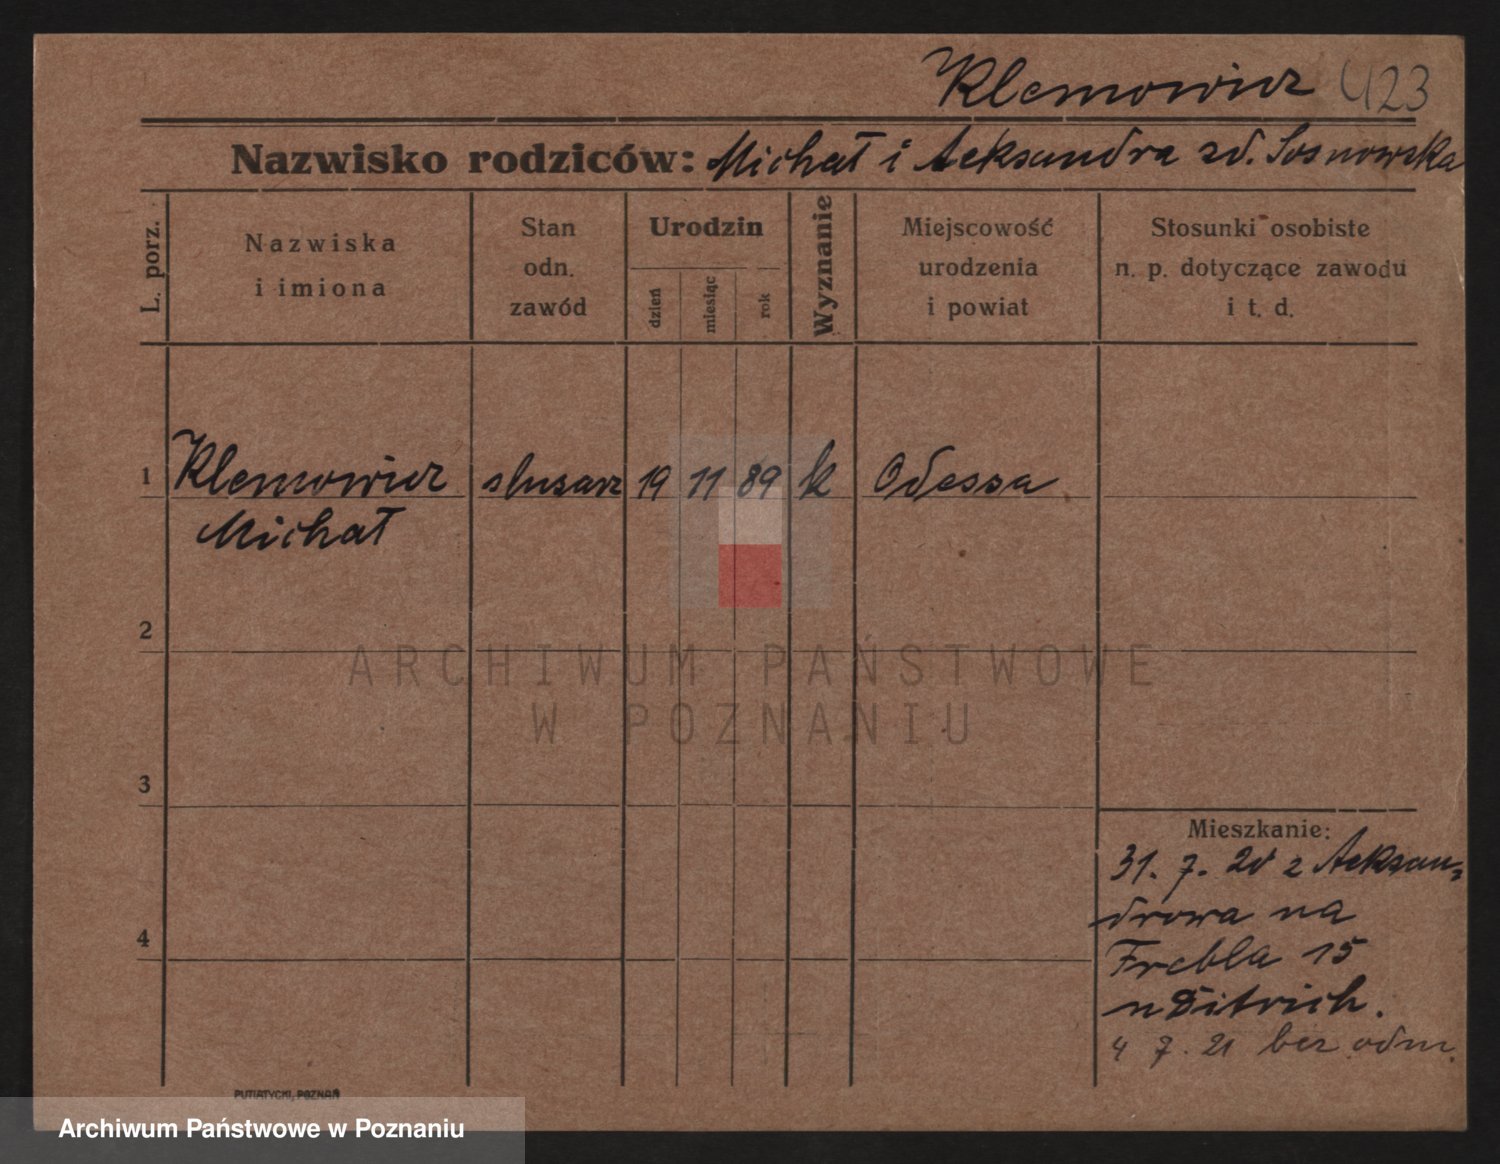 Klemowicz 423
Nazwisko rodziców: Michał i Aeksandra zd. Sosnowska
L. porz.
Nazwiska
i imiona
Stan
odn.
zawód
Urodzin
dzień
miesiąc
rok
Wyznanie
Miejscowość
urodzenia
i powiat
Stosunki osobiste
n. p. dotyczące zawodu
i t. d.
1 Klemowicz slusarz 19 11 89 k Odessa
Michał
2
ARCHIWUM PAŃSTWOWE
W POZNANIU
3
Mieszkanie:
31. 7. 20 z Aeksan-
drowa na
4
Frebla 15
u Ditrich.
4 7. 21 bez odm.
PUTIATYCKI, POZNAŃ
Archiwum Państwowe w Poznaniu